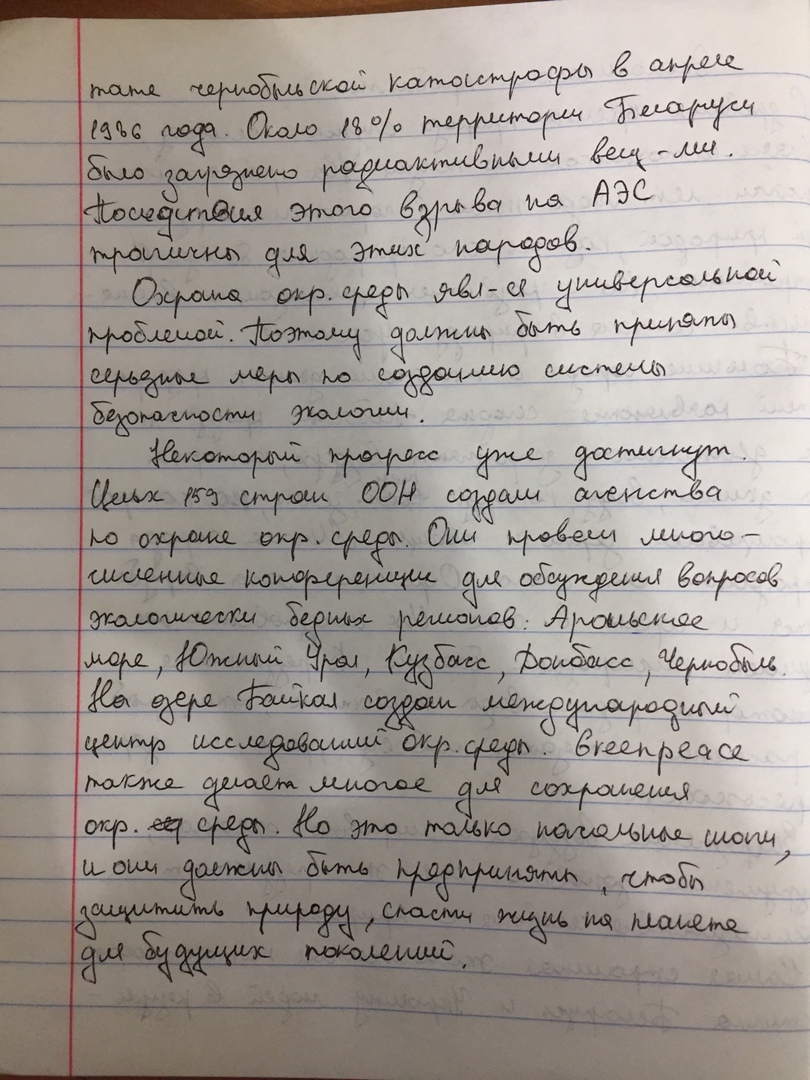 тате чернобыльской катострофы в апреле
1986 года. Около 18% территории Беларуси
было загрязнено радиактивными вещ-ми.
Последствия этого взрыва на АЭС
трагичны для этих народов.
Охрана окр. среды явл-ся универсальной
проблемой. Поэтому должны быть приняты
серьезные меры по созданию системы
безопасности экологии.
Некоторый прогресс уже достигнут.
Целых 159 стран ООН создали агенства
по охране окр. среды. Они провели много-
численные конференции для обсуждения вопросов
экологически бедных регионов: Аральское
море, Южный Урал, Кузбасс, Донбасс, Чернобыль.
На озере Байкал создан международный
центр исследований окр. среды. Greenpeace
также делает многое для сохранения
окр. среды. Но это только начальные шаги,
и они должны быть предприняты, чтобы
защитить природу, спасти жизнь на планете
для будущих поколений.